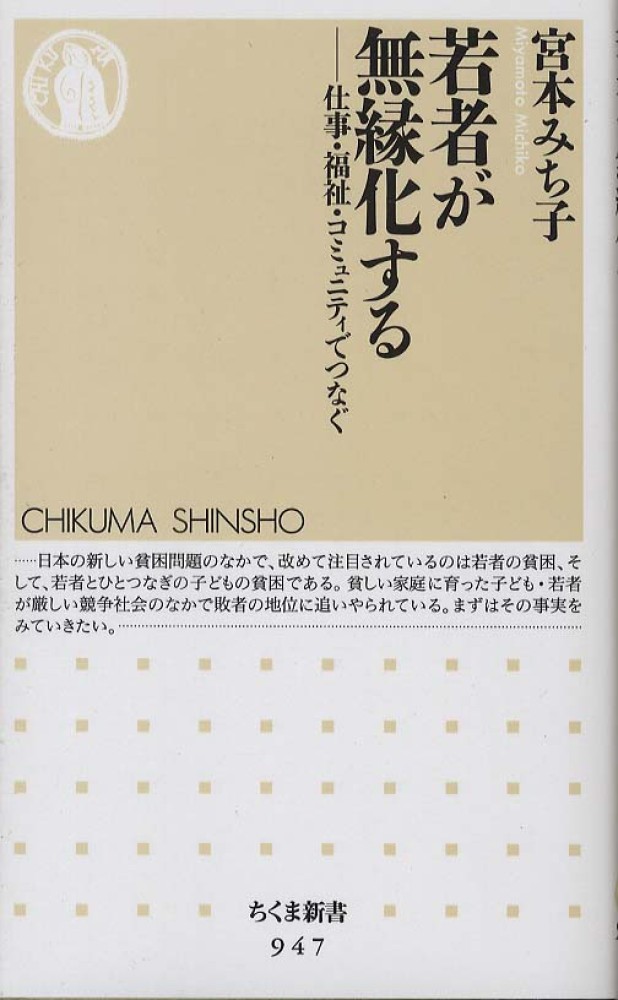 宮本みち子
Miyamoto Michiko
若者が
無縁化する
──仕事・福祉・コミュニティでつなぐ
CHIKUMA
CHIKUMA SHINSHO
……日本の新しい貧困問題のなかで、改めて注目されているのは若者の貧困、そ
して、若者とひとつなぎの子どもの貧困である。貧しい家庭に育った子ども・若者
が厳しい競争社会のなかで敗者の地位に追いやられている。まずはその事実を
みていきたい。……
ちくま新書
947